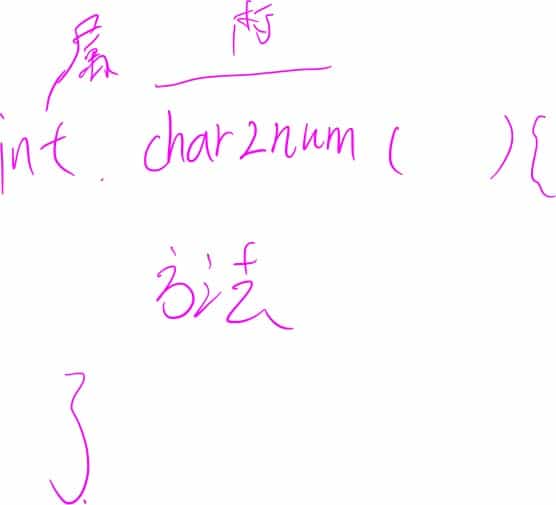 属
int char2num ( ) {
方法
}